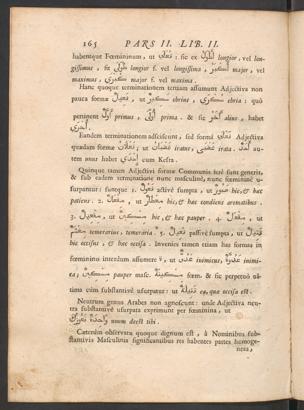 165 PARS II. LIB. II.
habentque Fœmininum, ut فُعْلَى : sic ex أَطْوَلُ longior, vel lon-
gissimus, sit طُولَى longior f. vel longissima, أَكْبَرُ major, vel
maximus, كُبْرَى major f. vel maxima.
Hanc quoque terminationem tertiam assumunt Adjectiva non
pauca formæ فَعْلَان, ut سَكْرَان ebrius, سَكْرَى ebria : quò
pertinent أَوَّل primus, أُولَى prima. & sic آخَر alius, habet
أُخْرَى.
Eandem terminationem adsciscunt, sed formâ Adjectiva
quædam formæ فَعْلَان, ut غَضْبَان iratus, غَضْبَى irata.
autem unus habet إِحْدَى cum Kesra.
Quinque tamen Adjectivi formæ Communis ferè sunt generis,
& sub eadem terminatione nunc masculinè, nunc fœmininè u-
surpantur: suntque 1. فَعُول activè sumpta, ut صَبُور hic, & hæc
patiens 2. مِفْعَال, ut hic, & hæc condiens aromatibus.
3. مِفْعِيل, ut مِسْكِين hic, & hæc pauper. 4. مِفْعَل, ut
temerarius, temeraria 5. فَعِيل passivè sumpta, ut قَتِيل
hic occisus, & hæc occisa. Invenies tamen etiam has formas in
fœminino interdum assumere ة, ut عَدُوّ inimicus, عَدُوَّة inimi-
ca; مِسْكِين pauper masc. مِسْكِينَة fœm. & sic perpetuò ul-
tima cùm substantivè usurpatur: ut قَتِيلَة ea, quæ occisa est.
Neutrum genus Arabes non agnoscunt: unde Adjectiva neu-
tra substantivè usurpata exprimunt per fœminina, ut
unum deest tibi.
Cæterùm observatu quoque dignum est, à Nominibus sub-
stantivis Masculinis significantibus res habentes partes homoge-
nea,